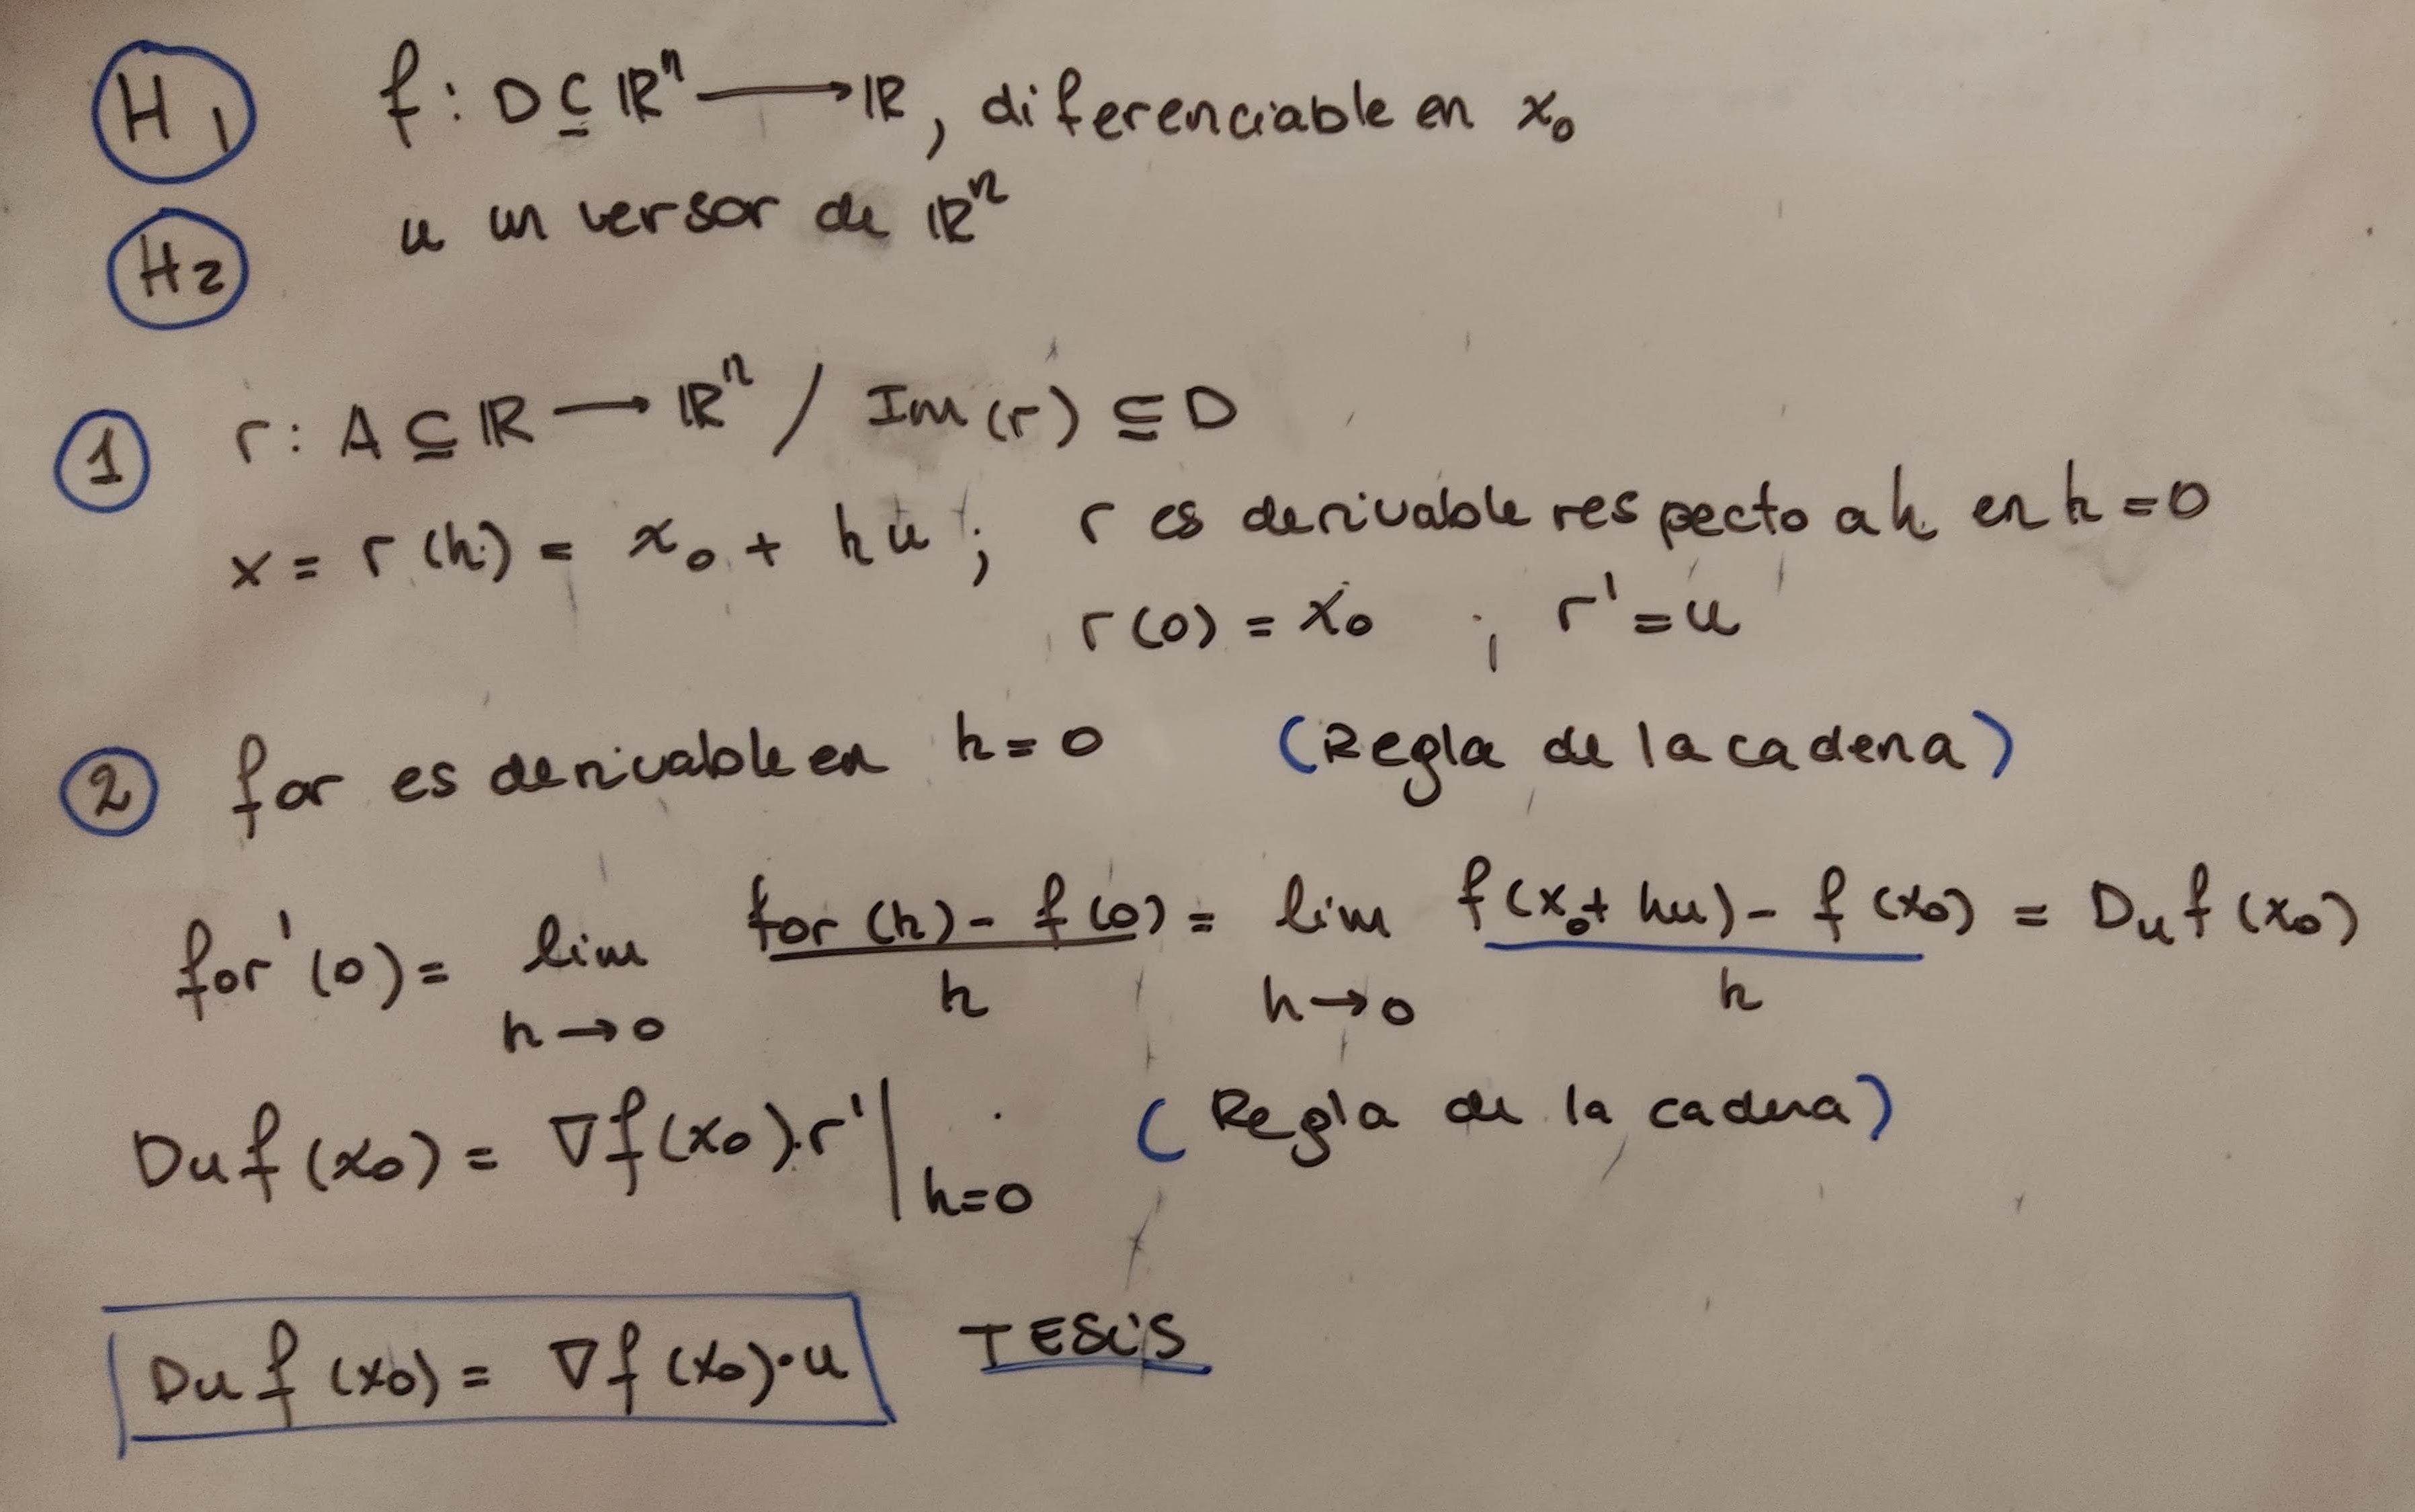 H1 f: D ⊆ ℝⁿ → ℝ, diferenciable en x₀
H2 u un versor de ℝⁿ
1 r: A ⊆ ℝ → ℝⁿ / Im(r) ⊆ D
x = r(h) = x₀ + hu ; r es derivable respecto a h en h=0
r(0) = x₀ ; r' = u
2 for es derivable en h=0 (Regla de la cadena)
for'(0) = lim h→0 (for(h) - f(0))/h = lim h→0 (f(x₀+hu) - f(x₀))/h = Du f(x₀)
Du f(x₀) = ∇f(x₀).r'|h=0 (Regla de la cadena)
Du f(x₀) = ∇f(x₀)·u TESIS